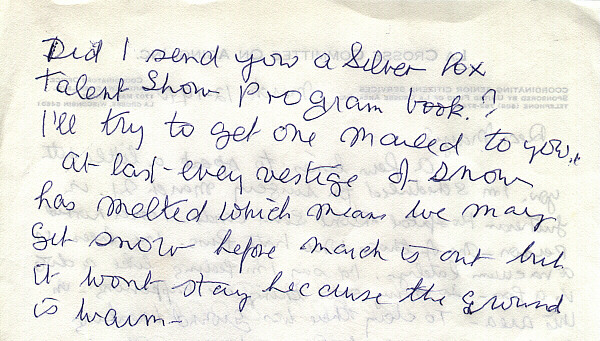 Did I send you a Silver Fox
Talent Show Program book.?
I'll try to get one mailed to you..
at last every vestige of snow
has melted which means we may
get snow before march is out but
it wont stay because the ground
is warm-